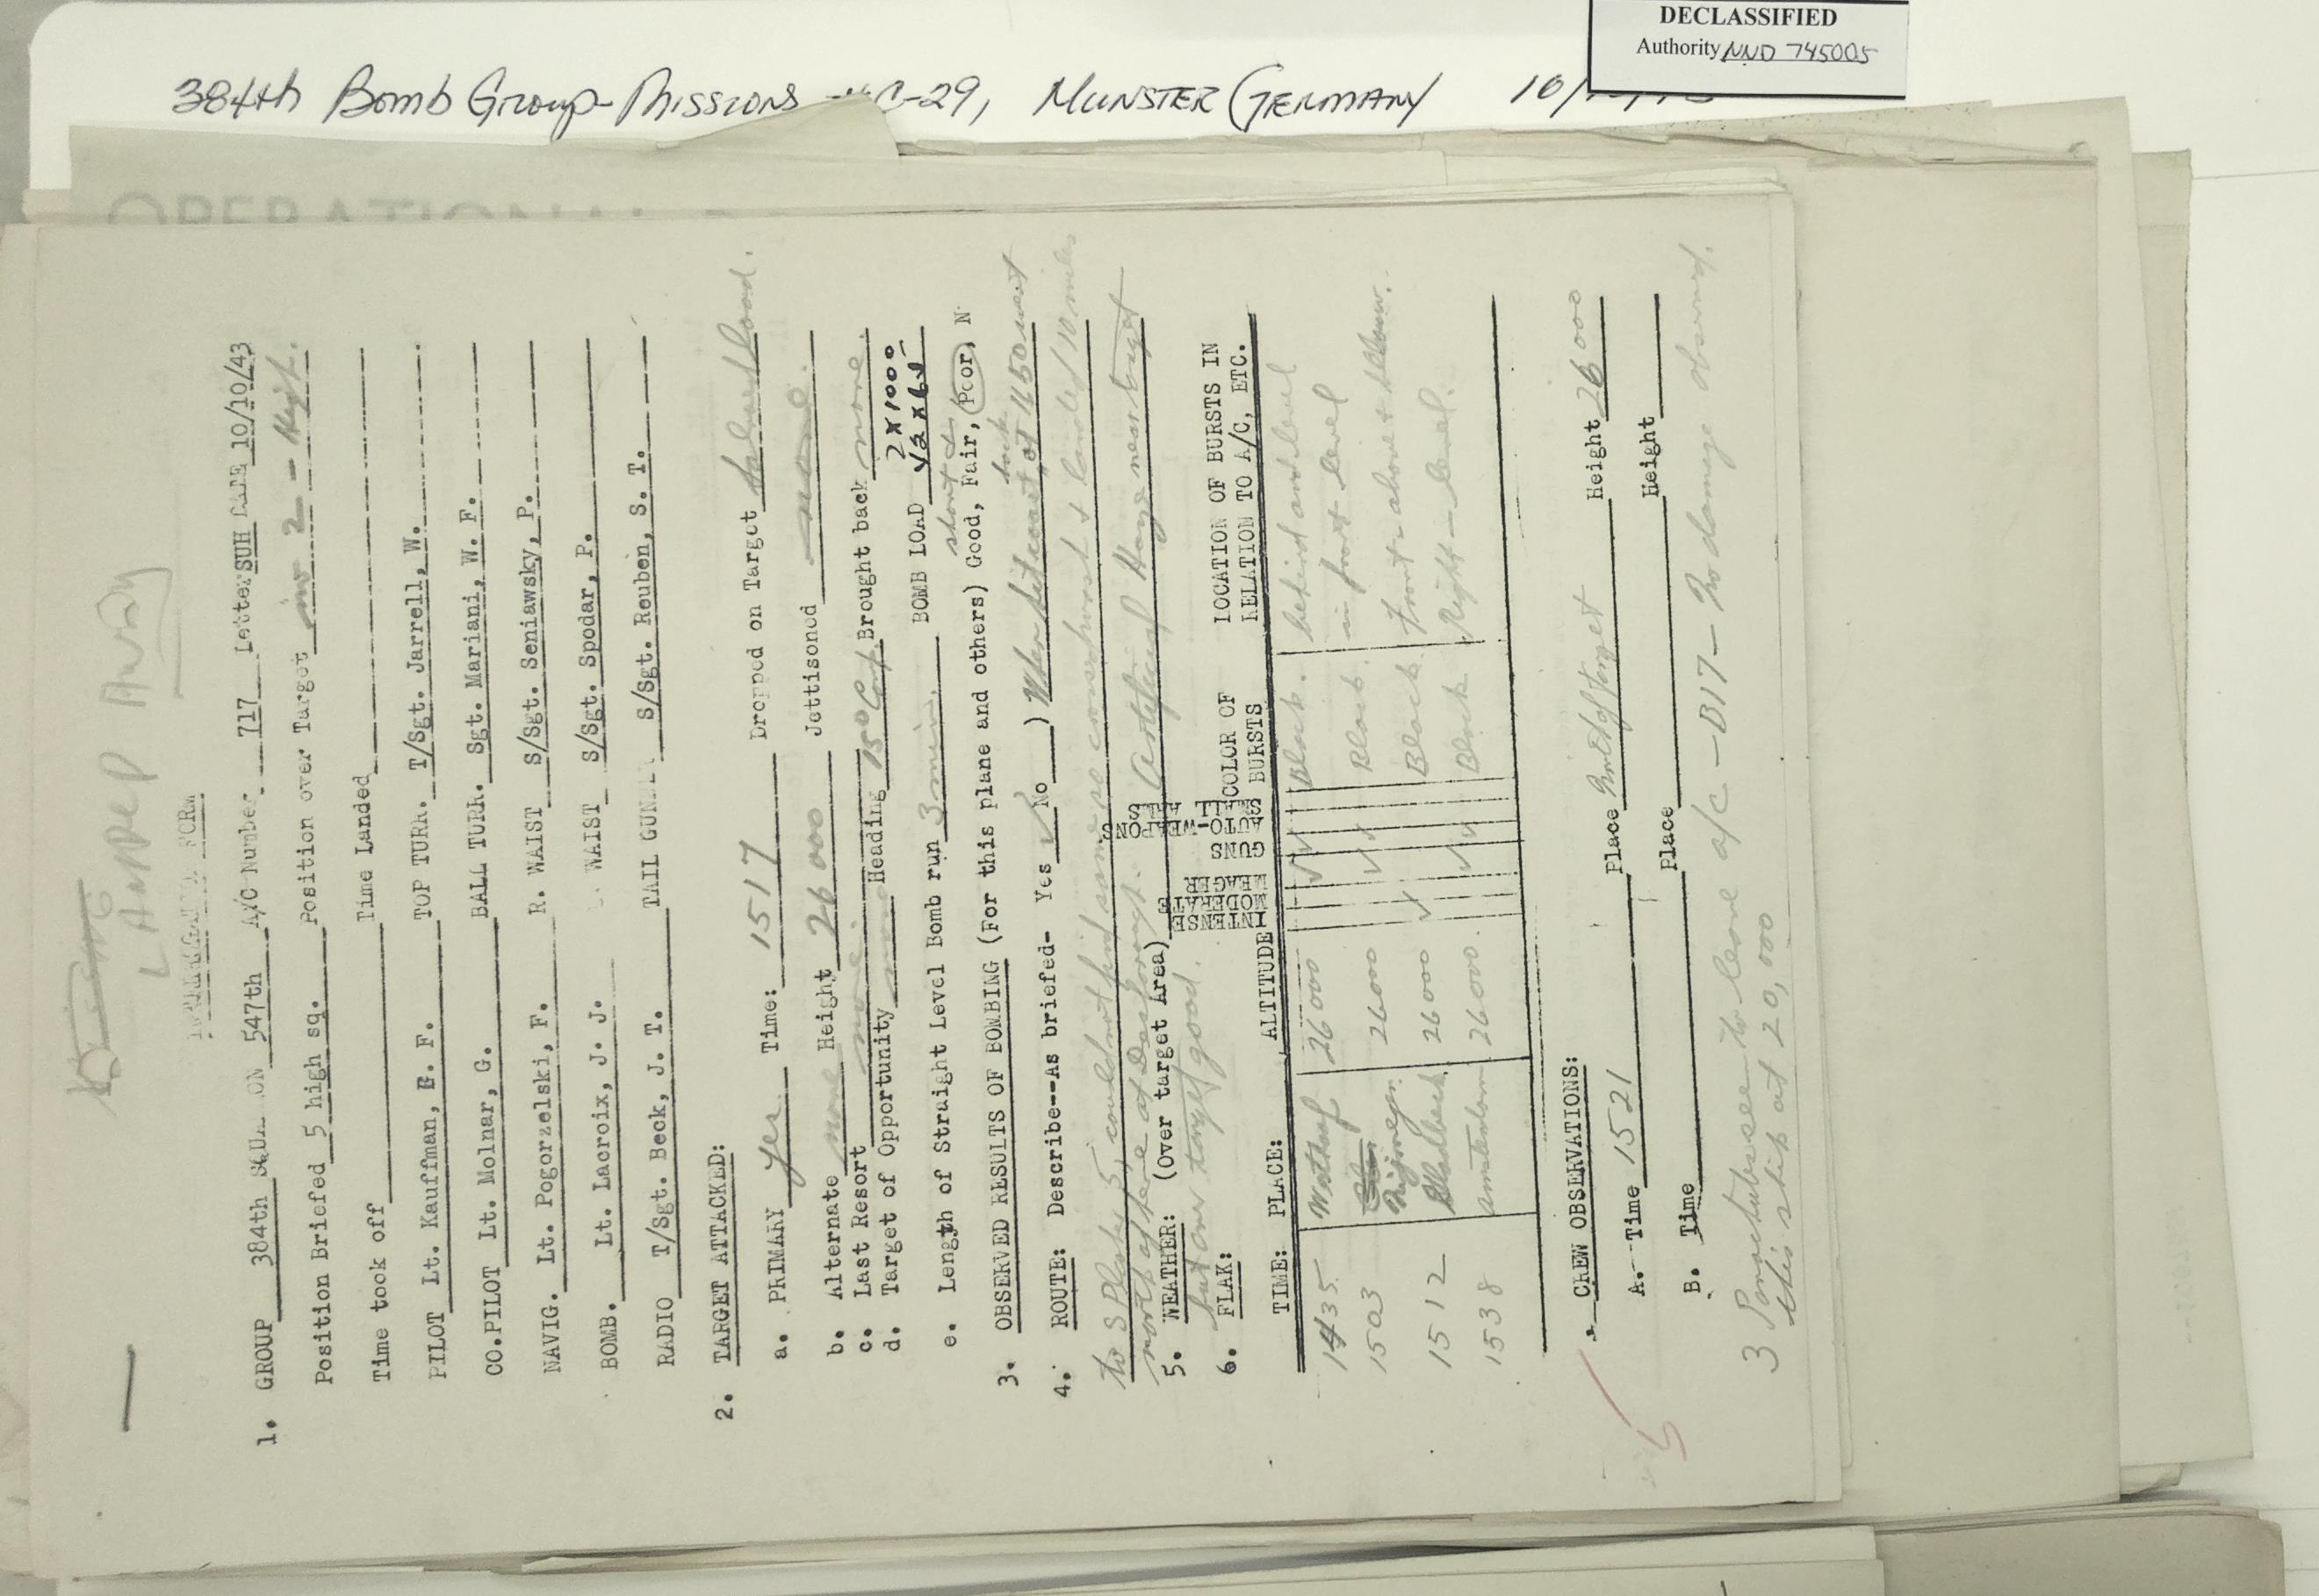 DECLASSIFIED
Authority NND 745005
384th Bomb Group-Missions -29, MUNSTER (GERMANY 10/
OPERATIONAL
LANDED AWAY
INTERROGATION FORM
1. GROUP 384th SQUADRON 547th A/C Number 717 Letter SUH DATE 10/10/43
Position Briefed 5 high sq. Position over Target 2 -
Time took off Time Landed
PILOT Lt. Kauffman, F. TOP TURR. T/Sgt. Jarrell, W.
CO.PILOT Lt. Molnar, G. BALL TURR. Sgt. Mariani, W. F.
NAVIG. Lt. Pogorzelski, F. R. WAIST S/Sgt. Seniawsky, P.
BOMB. Lt. Lacroix, J. J. WAIST S/Sgt. Spodar, P.
RADIO T/Sgt. Beck, J. T. TAIL GUNNER S/Sgt. Reuben, S. T.
2. TARGET ATTACKED:
a. PRIMARY yes. Time: 1517 Dropped on Target load.
b. Alternate none Height 26000 Jettisoned none.
c. Last Resort none
d. Target of Opportunity none Heading 150° Comp. Brought back none.
e. Length of Straight Level Bomb run 3 min. BOMB LOAD 2 X 1000
short &
3. OBSERVED RESULTS OF BOMBING (For this plane and others) Good, Fair, Poor, N
4. ROUTE: Describe--As briefed- Yes ✓ No ) When hit coast at 1650 went
to Splasher 5, could not find some so came home & landed 10 miles
north of here at Desborough.
5. WEATHER: (Over target Area) Artificial Haze near target
but over target good.
6. FLAK:
TIME: PLACE: ALTITUDE INTENSE MODERATE MEAGER GUNS AUTO-WEAPONS COLOR OF BURSTS LOCATION OF BURSTS IN RELATION TO A/C, ETC.
1435 26000 ✓ ✓ Black. behind and level
1503 Nijmegen 26000 ✓ ✓ Black. in front level
1512 26000 ✓ Black. Front - above & below.
1538 Amsterdam 26000 ✓ ✓ Black Right - level.
CREW OBSERVATIONS:
A. Time 1521 Place North of target Height 26000
B. Time Place Height
3 Parachutes seen to leave a/c - B17 - No damage observed.
this ship at 20,000